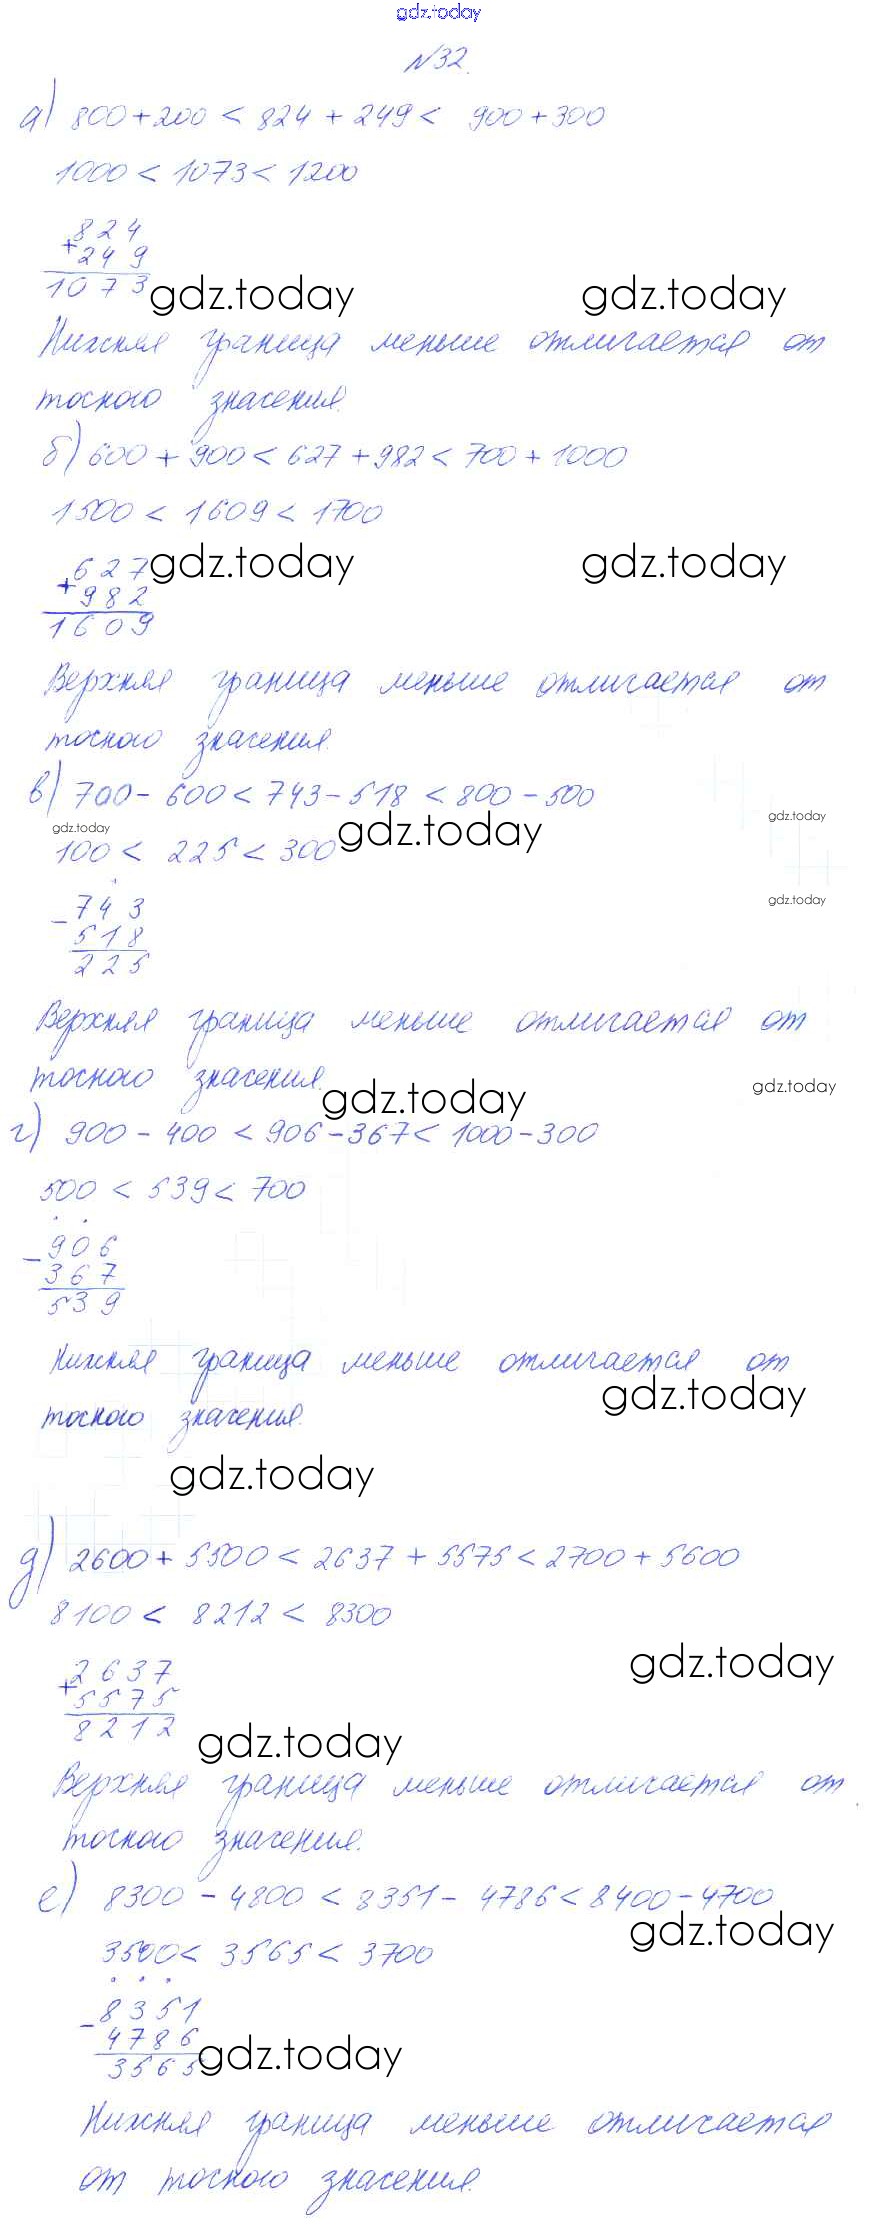 gdz.today
№32.
а) 800 + 200 < 824 + 249 < 900 + 300
1000 < 1073 < 1200
824
+ 249
1073
gdz.today gdz.today
Нижняя граница меньше отличается от
точного значения.
б) 600 + 900 < 627 + 982 < 700 + 1000
1500 < 1609 < 1700
627
+ 982
1609
gdz.today gdz.today
Верхняя граница меньше отличается от
точного значения.
в) 700 - 600 < 743 - 518 < 800 - 500
gdz.today gdz.today gdz.today
100 < 225 < 300
- 743
518
225
gdz.today
Верхняя граница меньше отличается от
точного значения.
gdz.today gdz.today
г) 900 - 400 < 906 - 367 < 1000 - 300
500 < 539 < 700
- 906
367
539
Нижняя граница меньше отличается от
gdz.today
точного значения.
gdz.today
д) 2600 + 5500 < 2637 + 5575 < 2700 + 5600
8100 < 8212 < 8300
gdz.today
2637
+ 5575
8212
gdz.today
Верхняя граница меньше отличается от
точного значения.
е) 8300 - 4800 < 8351 - 4786 < 8400 - 4700
gdz.today
3500 < 3565 < 3700
- 8351
4786
3565
gdz.today
Нижняя граница меньше отличается
от точного значения.